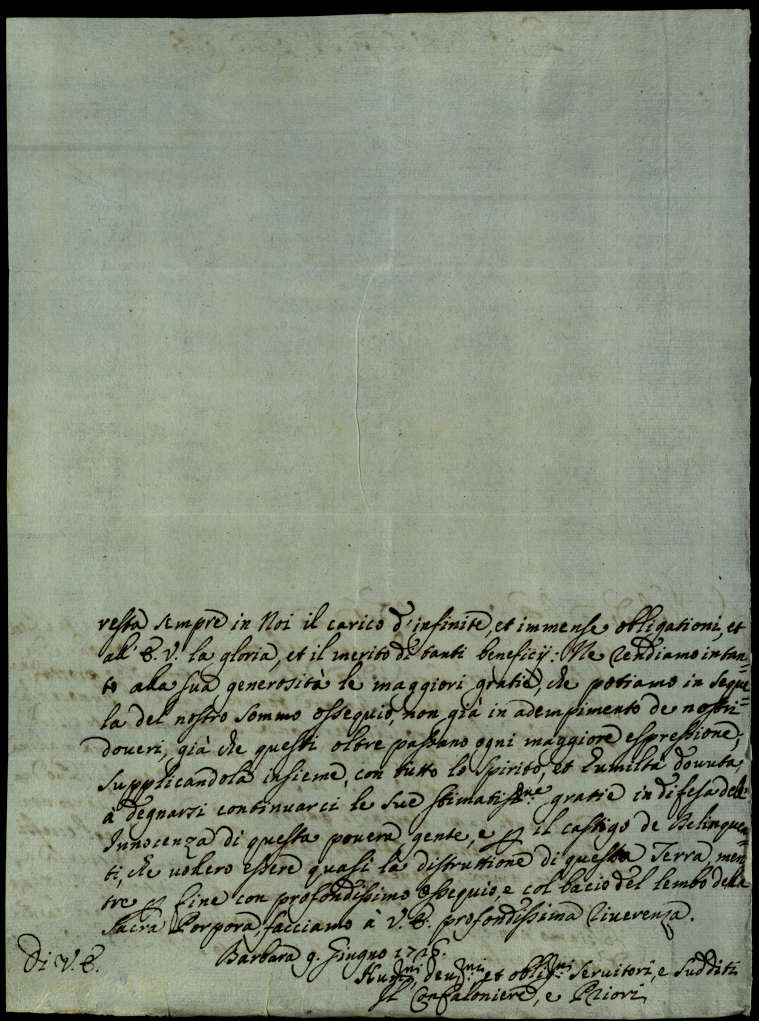 resta sempre in Noi il carico d'infinite, et immense obligationi, et
all' E. V. la gloria, et il merito di tanti beneficij: Ne rendiamo intan=
to alla sua generosità le maggiori gratie, che potiamo in seque=
la del nostro sommo ossequio, non già in adempimento de nostri
doveri, già che questi oltre passano ogni maggiore espressione;
supplicandola insieme, con tutto lo spirito, et humiltà dovuta,
à degnarsi continuarci le sue stimatisme gratie in difesa dell'
Innocenza di questa povera gente, e p il castigo de Delinquen=
ti, che volero essere quasi la distruttione di questa Terra, men
tre p fine con profondissimo ossequio, e col bacio del lembo della
Sacra Porpora facciamo à V. E. profondissima riverenza.
Barbara 9. Giugno
Di V. E.
Humni devmi et obligmi Servitori, e Sudditi
Il Confaloniere, e Priori